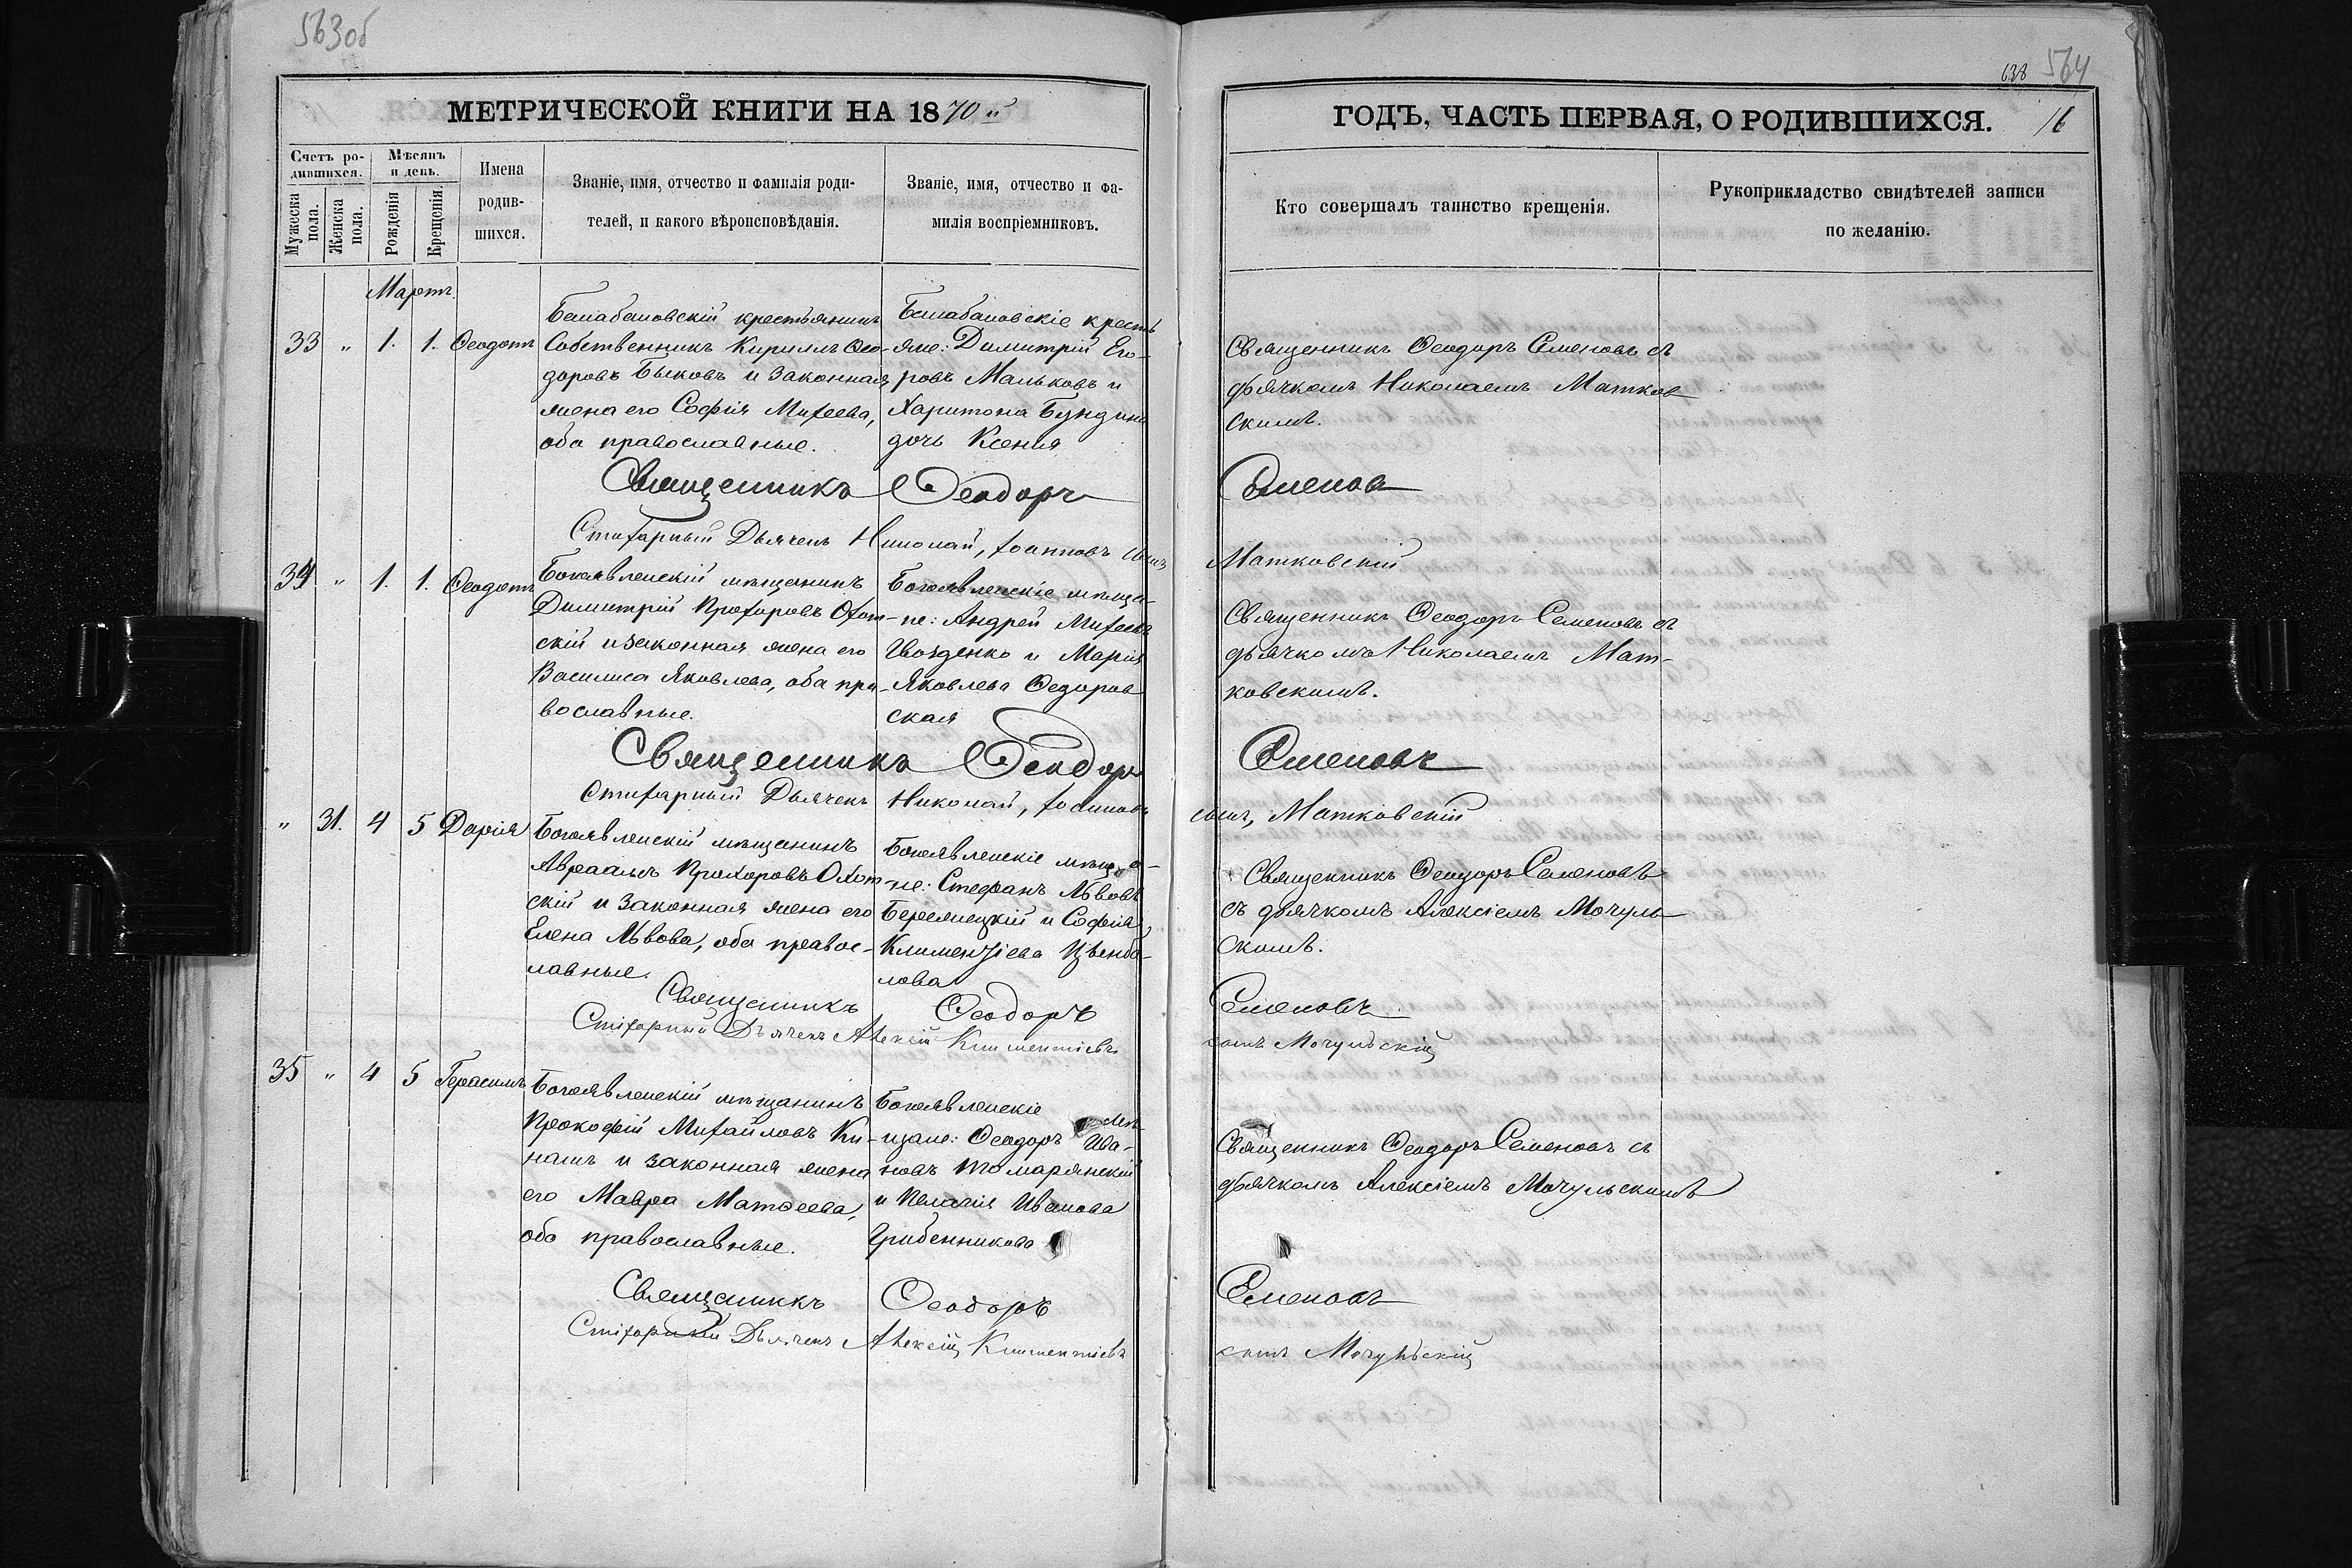 563об
638 564
МЕТРИЧЕСКОЙ КНИГИ НА 1870й
ГОДЪ, ЧАСТЬ ПЕРВАЯ, О РОДИВШИХСЯ. 16
Счетъ ро-
дившихся.
Мужеска пола.
Женска пола.
Мѣсяцъ
и день.
Рожденія
Крещенія.
Имена
родив-
шихся.
Званіе, имя, отчество и фамилія роди-
телей, и какого вѣроисповѣданія.
Званіе, имя, отчество и фа-
милія воспріемниковъ.
Кто совершалъ таинство крещенія.
Рукоприкладство свидѣтелей записи
по желанію.
Мартъ.
33 " 1. 1. Ѳеодотъ
Балабановскій крестьянинъ
Собственникъ Кириллъ Ѳео-
доровъ Быковъ и законная
жена его Софія Михеева,
оба православные.
Балабановскіе кресть
яне: Димитрій Его-
ровъ Мальковъ и
Харитона
дочь Ксенія
Священникъ Ѳеодоръ Семеновъ съ
дьячкомъ Николаемъ Матков
скимъ.
Священникъ Ѳеодоръ Семеновъ
Стихарный Дьячекъ Николай, Іоанновъ сынъ Матковскій
34 " 1. 1. Ѳеодотъ
Богоявленскій мѣщанинъ
Димитрій Прохоровъ Охот-
скій и законная жена его
Василиса Яковлева, оба пра-
вославные.
Богоявленскіе мѣща-
не: Андрей Михеевъ
Гвозденко и Марія
Яковлева Ѳедоров
ская
Священникъ Ѳеодоръ Семеновъ съ
дьячкомъ Николаемъ Мат-
ковскимъ.
Священникъ Ѳеодоръ Семеновъ
Стихарный Дьячекъ Николай, Іоанновъ сынъ, Матковскій
" 31. 4 5 Дарія
Богоявленскій мѣщанинъ
Авраамъ Прохоровъ Охот-
скій и законная жена его
Елена Львова, оба правос-
лавные.
Богоявленскіе мѣща-
не: Стефанъ Львовъ
Бережецкій и Софія
Климентіева
лова
Священникъ Ѳеодоръ Семеновъ
съ дьячкомъ Алексіемъ Мочуль
скимъ.
Священникъ Ѳеодоръ Семеновъ
Стіхарный Дьячекъ Алексій Климентіевъ сынъ Мочульскій
35 " 4 5 Герасимъ
Богоявленскій мѣщанинъ
Прокофій Михайловъ Ки-
нашъ и законная жена
его Мавра Матѳеева,
оба православные.
Богоявленскіе мѣ-
щане: Ѳеодоръ Ива-
новъ Томарянскій
и Пелагія Иванова
Грибенникова
Священникъ Ѳеодоръ Семеновъ съ
дьячкомъ Алексіемъ Мочульскимъ
Священникъ Ѳеодоръ Семеновъ
Стіхарный Дьячекъ Алексій Климентіевъ сынъ Мочульскій